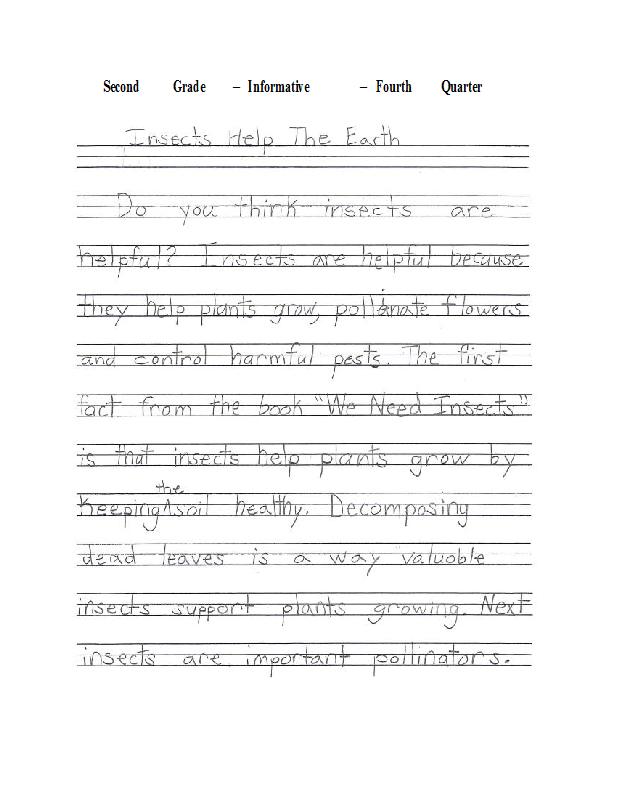 Second Grade – Informative – Fourth Quarter
Insects Help The Earth
Do you think insects are
helpful? Insects are helpful because
they help plants grow, pollinate flowers
and control harmful pests. The first
fact from the book "We Need Insects"
is that insects help plants grow by
keeping the soil healthy. Decomposing
dead leaves is a way valuoble
insects support plants growing. Next
insects are important pollinators.